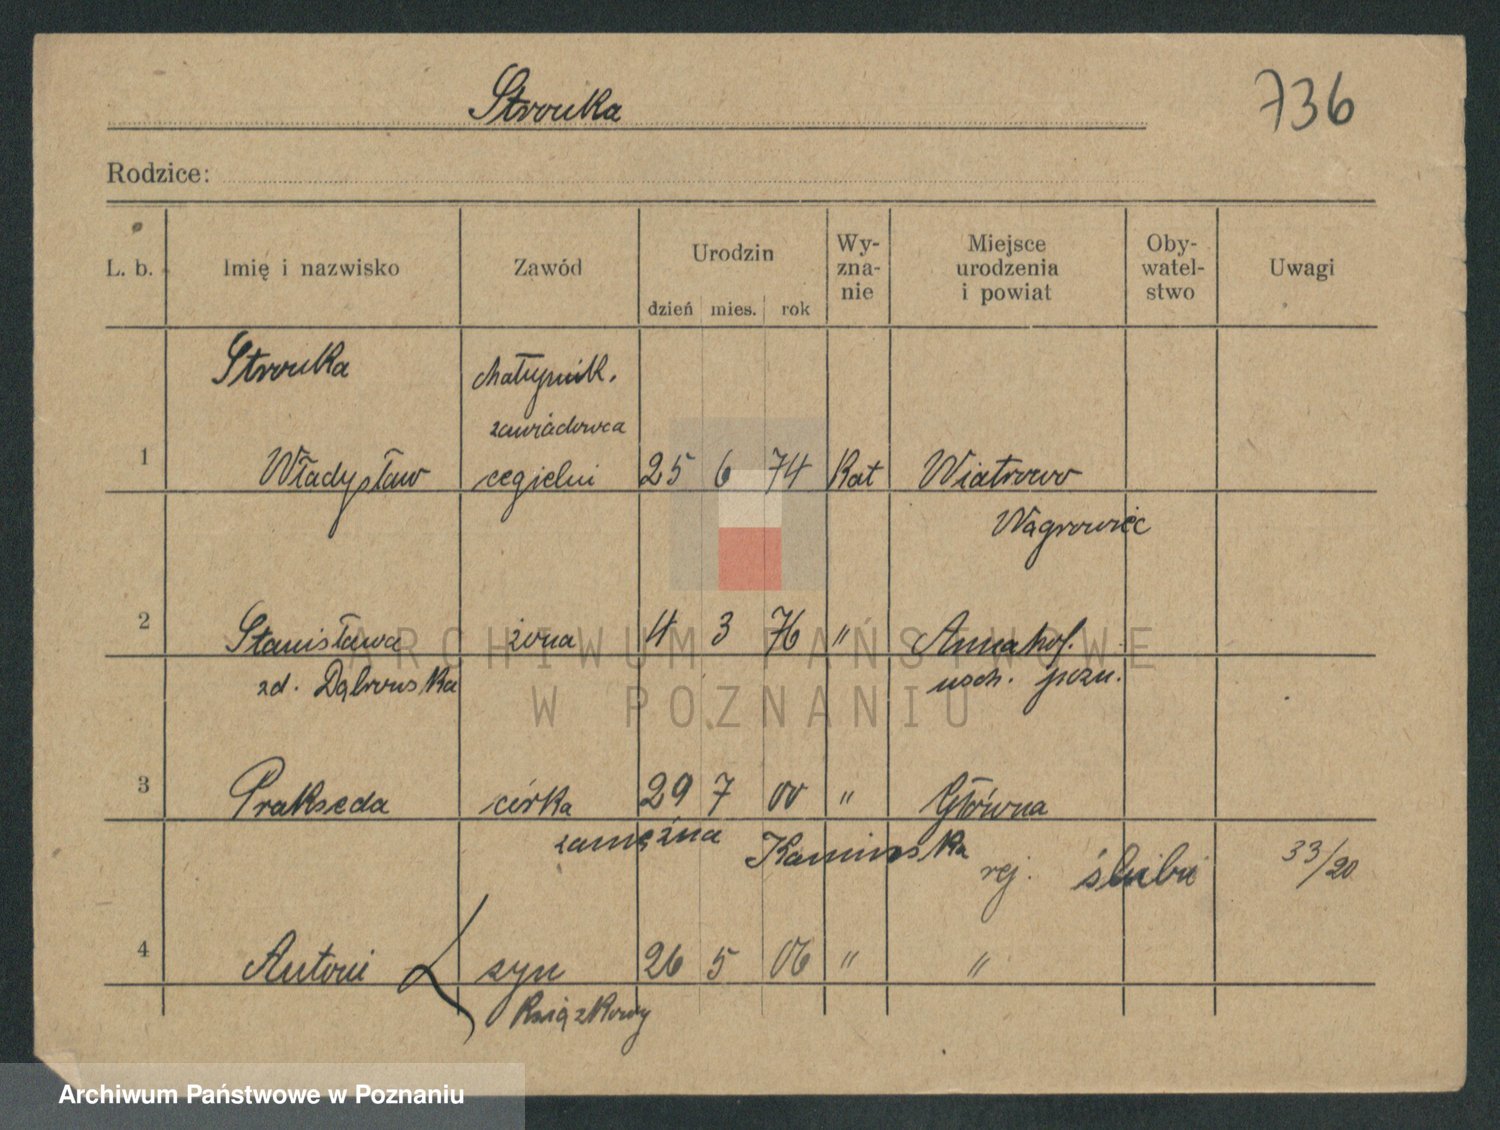 Strouka
736
Rodzice:
L. b. Imię i nazwisko Zawód Urodzin dzień mies. rok Wy-zna-nie Miejsce urodzenia i powiat Oby-watel-stwo Uwagi
Strouka chałupnik.
zawiadowca
1 Władysław cegielni 25 6 74 Kat Wiatrowo
Wągrowiec
2 Stanisława żona 4 3 76 " Annahof.
zd. Dąbrowska wsch. pozn.
3 Prakseda córka 29 7 00 " Główna
zamężna Kaminska rej. ślubu 33/20
4 Antoni syn 26 5 06 " "
Książkowy
ARCHIWUM PAŃSTWOWE
W POZNANIU
Archiwum Państwowe w Poznaniu